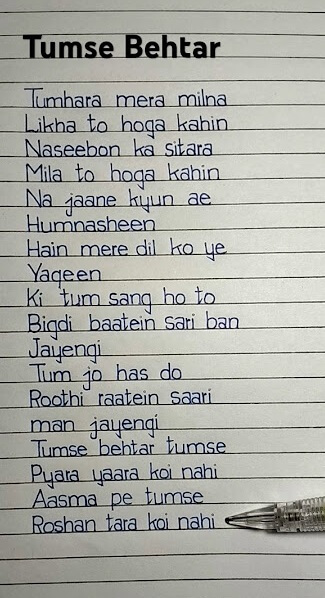 Tumse Behtar
Tumhara mera milna
Likha to hoga kahin
Naseebon ka sitara
Mila to hoga kahin
Na jaane kyun ae
Humnasheen
Hain mere dil ko ye
Yaqeen
Ki tum sang ho to
Bigdi baatein sari ban
Jayengi
Tum jo has do
Roothi raatein saari
man jayengi
Tumse behtar tumse
Pyara yaara koi nahi
Aasma pe tumse
Roshan tara koi nahi